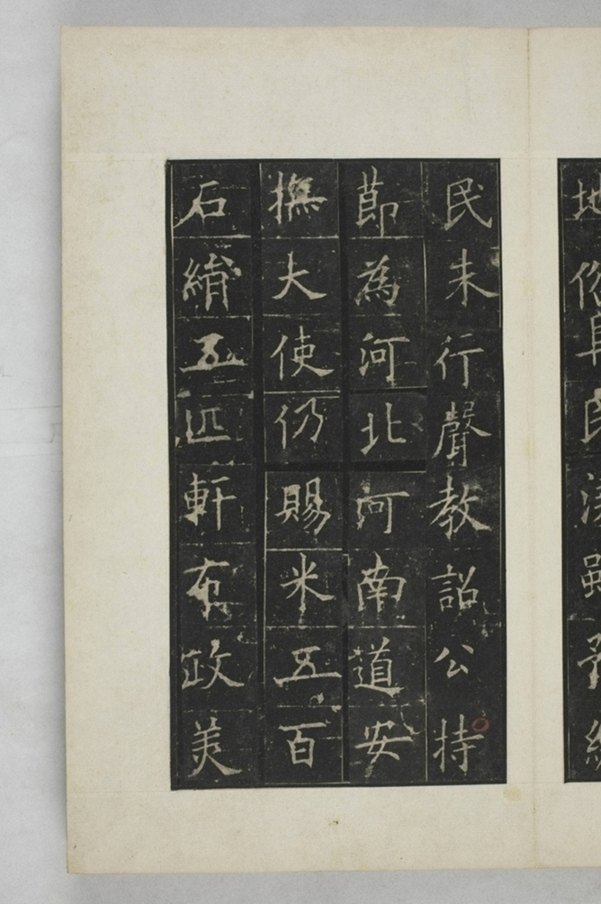 地俗阜民
民未行聲教詔公持
節為河北河南道安
撫大使仍賜米五百
石絹五匹軒布政美